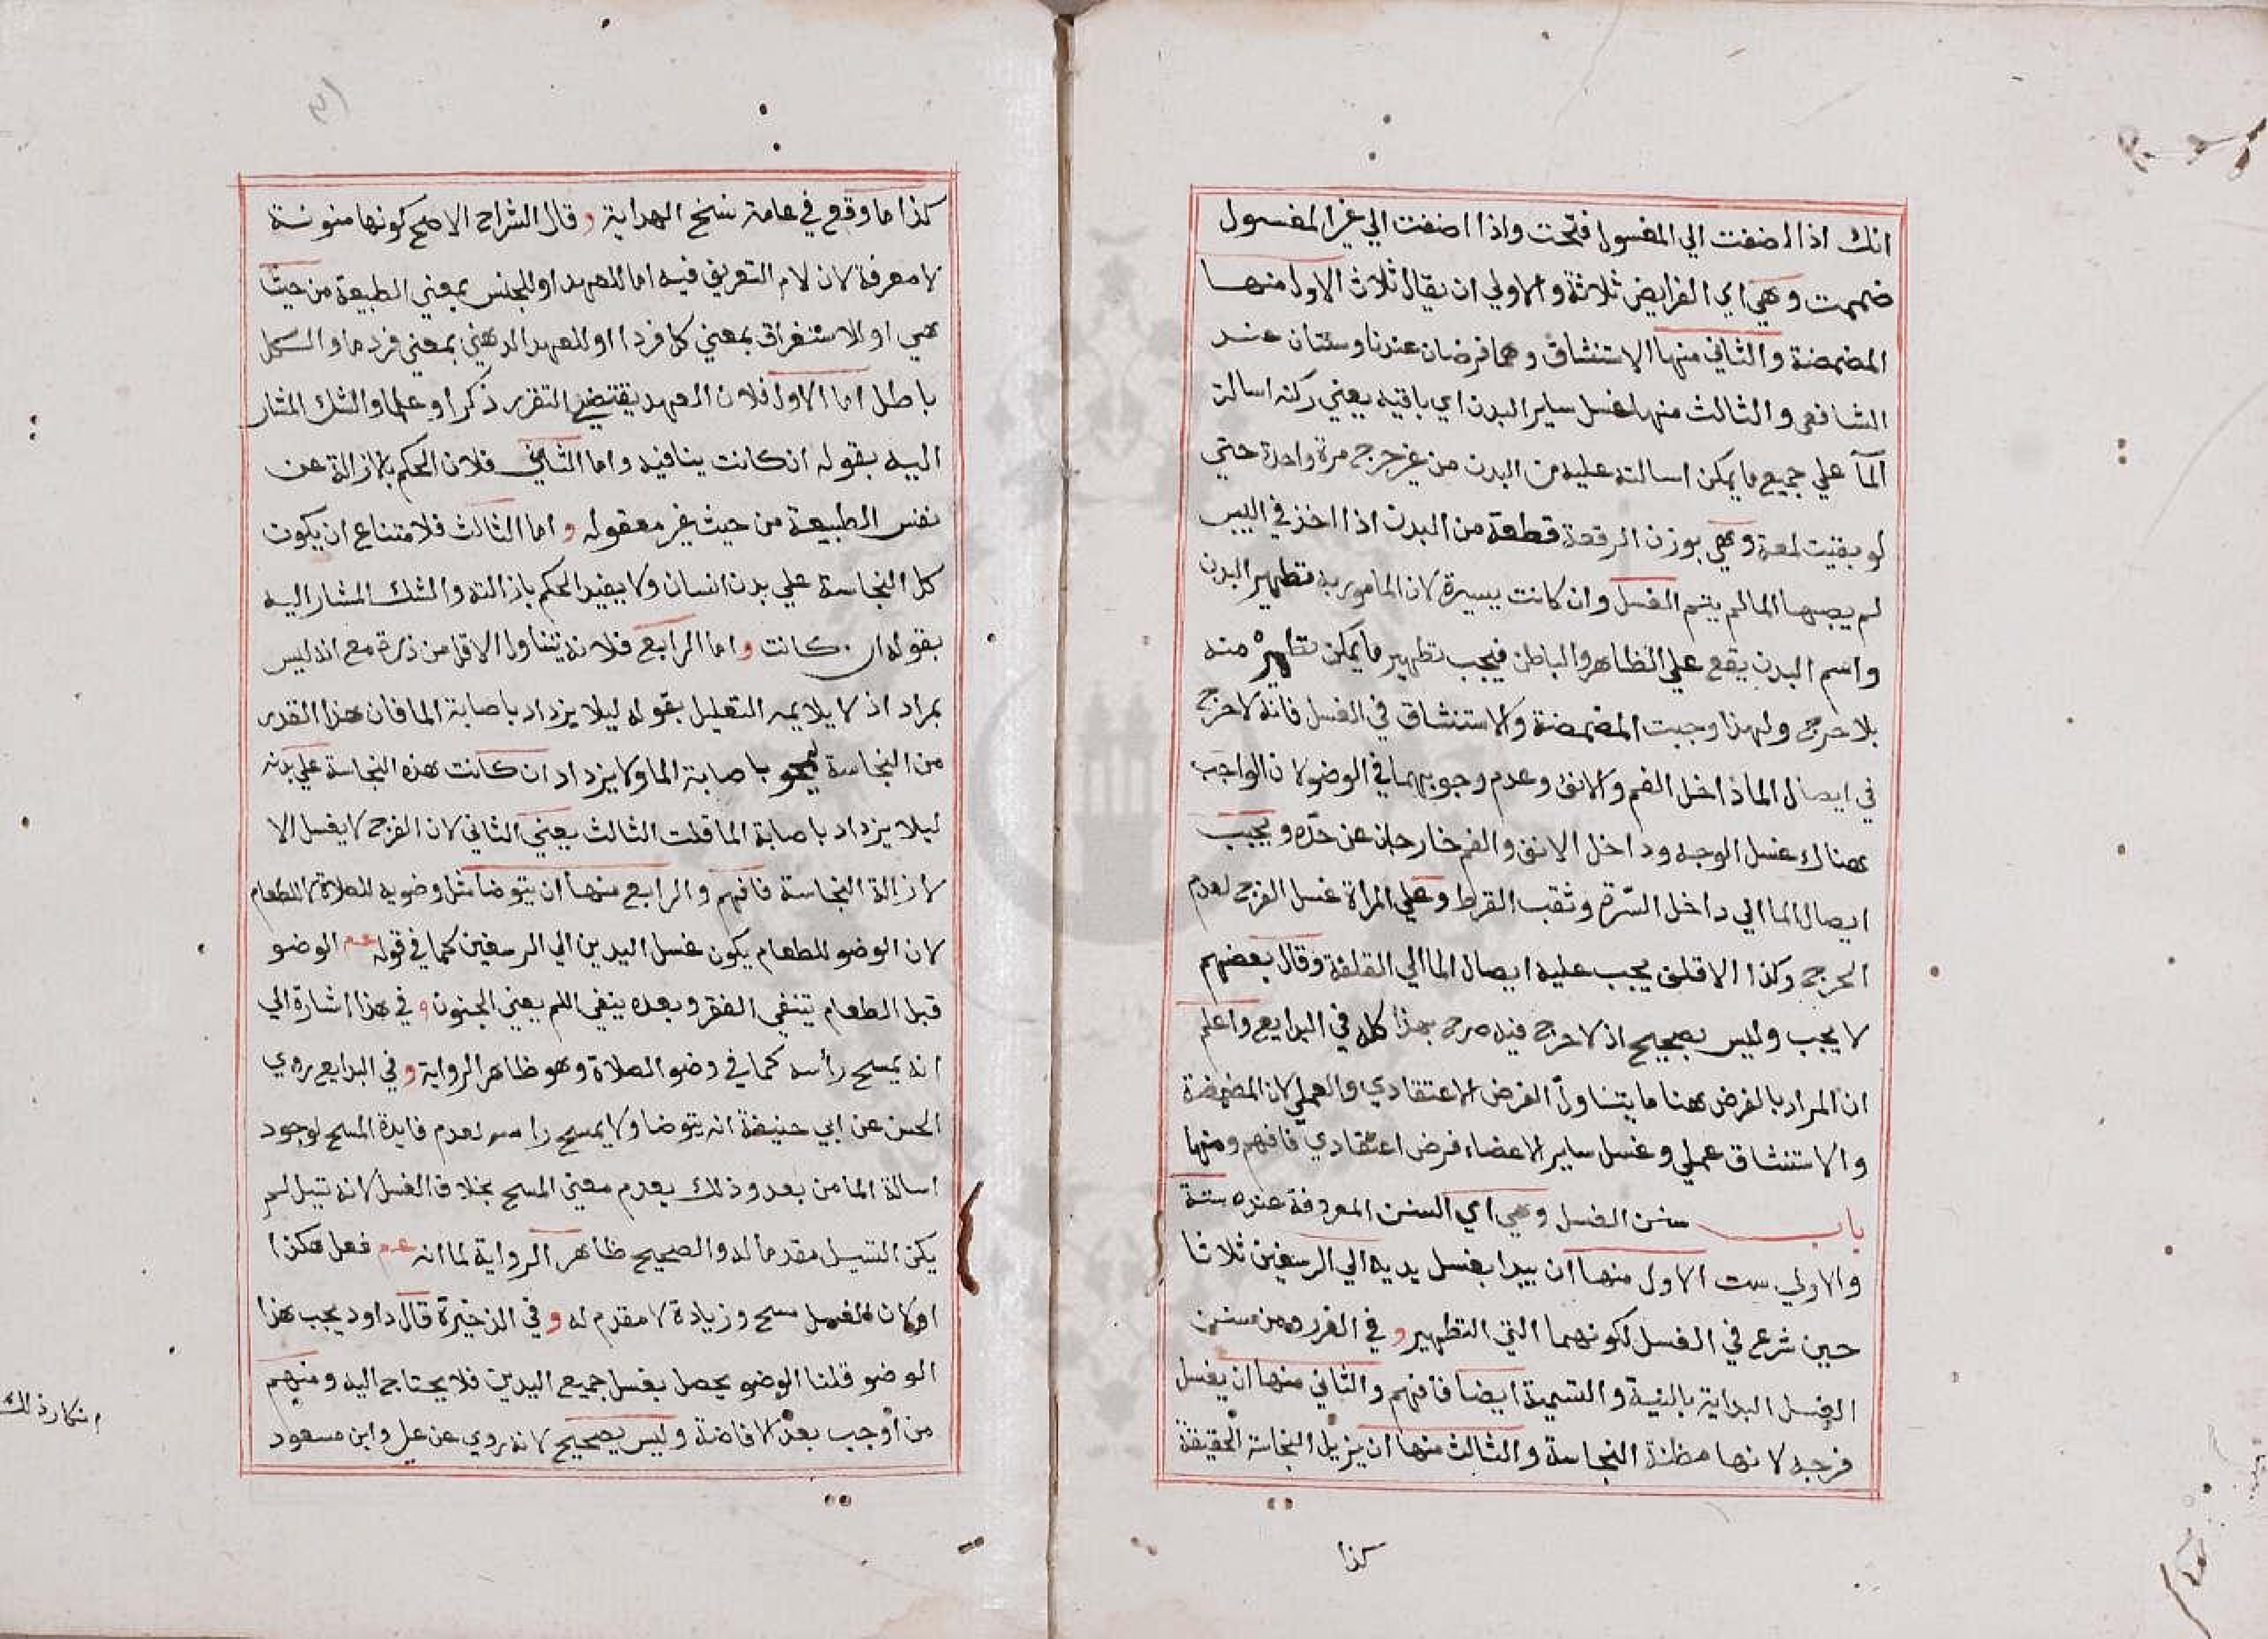 انك اذا اضفت الي المغسول فتحت واذا اضفت الي غير المغسول
ضممت وهي اي الفرايض ثلاثة والاولي ان يقال ثلاث الاول منها
المضمضة والثاني منها الاستنشاق وهما فرضان عندنا وسنتان عند
الشافعي والثالث منها غسل ساير البدن اي باقيه يعني ركنه اسالة
المآ علي جميع ما يمكن اسالته عليه من البدن من غير حرج مرة واحدة حتي
لو بقيت لمعة وهي بوزن الرقعة قطعة من البدن اذا اخذ في اليبس
لم يصبها الما لم يتم الغسل وان كانت يسيرة لان المامور به تطهير البدن
واسم البدن يقع علي الظاهر والباطن فيجب تطهير ما يمكن تطهيره منه
بلا حرج ولهذا وجبت المضمضة والاستنشاق في الغسل فانه لا حرج
في ايصال الما داخل الفم والانف وعدم وجوبهما في الوضو لان الواجب
هناك غسل الوجه وداخل الانف والفم خارجان عن حدّه ويجب
ايصال الما الي داخل السّرة وثقب القرط وعلي المراة غسل الفرج لعدم
الحرج وكذا الاقلف يجب عليه ايصال الما الي القلفة وقال بعضهم
لا يجب وليس بصحيح اذ لا حرج فيه صرح بهذا كله في البدايع واعلم
ان المراد بالفرض هنا ما يتناول الفرض الاعتقادي والعملي لان المضمضة
والاستنشاق عملي وغسل ساير الاعضاء فرض اعتقادي فافهم ومنها
باب سنن الغسل وهي اي السنن المعروفة عنده ستة
والاولي ست الاول منها ان يبدا بغسل يديه الي الرسغين ثلاثا
حين شرع في الغسل لكونهما التي التطهير وفي الغرر ومن سنن
الغسل البداية بالنية والتسمية ايضا فافهم والثاني منها ان يغسل
فرجه لانها مظنة النجاسة والثالث منها ان يزيل النجاسة الحقيقة
كذا
كذا ما وقع في عامة نسخ الهداية وقال الشراح الاصح كونها منونة
لا معرفة لان لام التعريف فيه اما للعهد او للجنس بمعني الطبيعة من حيث
هي او الاستغراق بمعني كل فرد او للعهد الذهني بمعني فرد ما والكل
باطل اما الاول فلان العهد يقتضي التقرر ذكرا او علما والشك المشار
اليه بقوله ان كانت ينافيه واما الثاني فلان الحكم بالازالة عن
نفس الطبيعة من حيث غير معقوله واما الثالث فلامتناع ان يكون
كل النجاسة علي بدن انسان ولا يفيد الحكم بازالته والشك المشار اليه
بقوله ان كانت واما الرابع فلانه يتناول الاقل من ذرة مع انه ليس
بمراد اذ لا يلايمه التعليل بقوله ليلا يزداد باصابة الما فان هذا القدر
من النجاسة باصابة الما ولا يزداد ان كانت هذه النجاسة علي بدنه
ليلا يزداد باصابة الما قلت الثالث يعني الثاني لان الفرج لا يغسل الا
لازالة النجاسة فافهم والرابع منها ان يتوضا مثل وضويه للصلاة لا للطعام
لان الوضو للطعام يكون غسل اليدين الي الرسغين كما في قوله عم الوضو
قبل الطعام ينفي الفقر وبعده ينفي اللم يعني الجنون وفي هذا اشارة الي
انه يمسح رأسه كما في وضو الصلاة وهو ظاهر الرواية وفي البدايع روي
الحسن عن ابي حنيفة انه يتوضا ولا يمسح راسه لعدم فايدة المسح لوجود
اسالة الما من بعد وذلك يعدم معني المسح بخلاف الغسل لانه تبيل لم
يكن التسيل مقدما له والصحيح ظاهر الرواية لما انه عم فعل هكذا
او لان الغسل مسح وزيادة لا مقدم له وفي الذخيرة قال داود يجب هذا
الوضو قلنا الوضو يحصل بغسل جميع اليدين فلا يحتاج اليه ومنهم
من أوجب بعد الافاضة وليس بصحيح لانه روي عن علي وابن مسعود
انكار ذلك